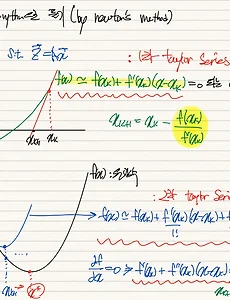 (by newton's method)
s.t.
: 1차 taylor Series
f(x) ≃ f(xₖ) + f'(xₖ)(x-xₖ) = 0
xₖ₊₁ = xₖ - f(xₖ)/f'(xₖ)
xₖ₊₁ xₖ
f(x) :
: 2차 taylor Ser
f(x) ≃ f(xₖ) + f'(xₖ)(x-xₖ) + f
1!
df/dx = 0 ⇒ f'(xₖ) + f''(xₖ)(x-xₖ) =
xₖ₊₁ x*